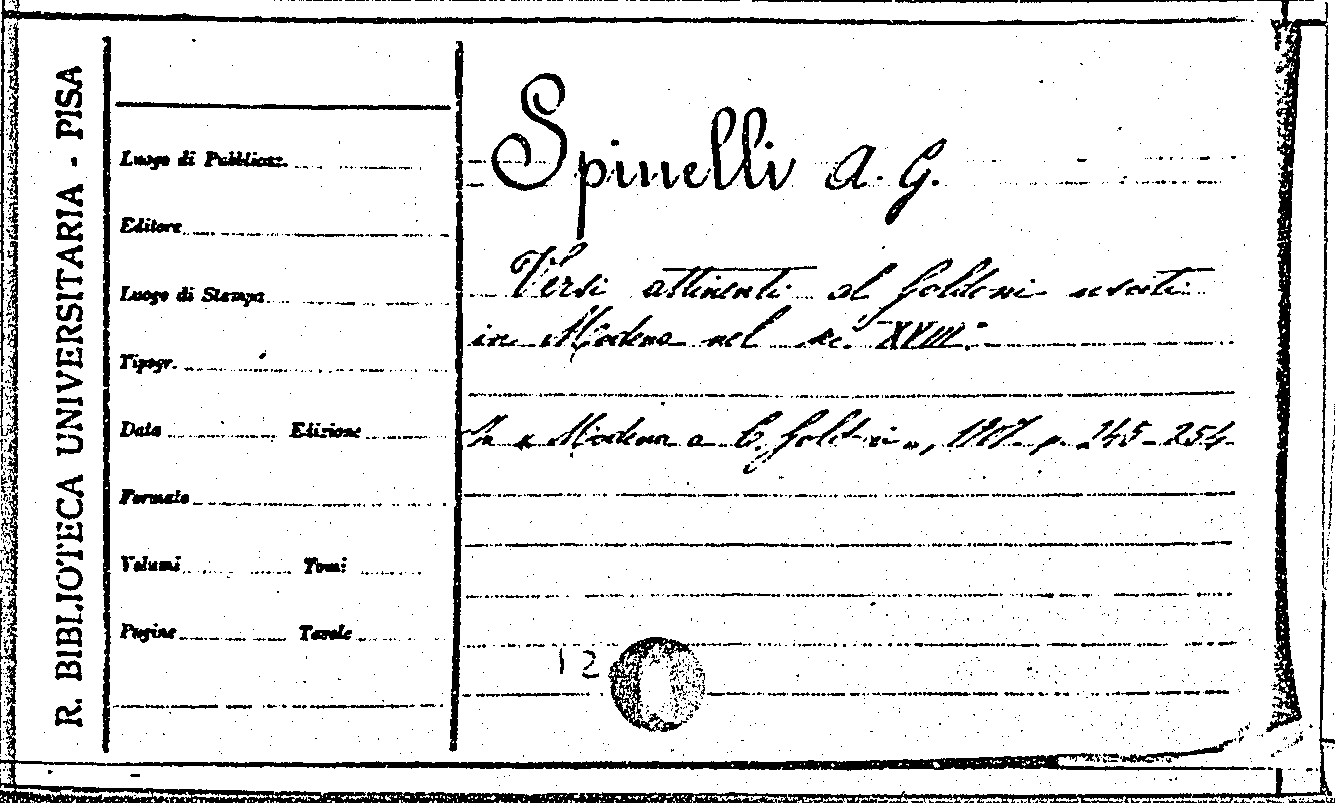 R. BIBLIOTECA UNIVERSITARIA - PISA
Luogo di Pubblicaz.
Editore
Luogo di Stampa
Tipogr.
Data Edizione
Formato
Volumi Tomi
Pagine Tavole
Spinelli A. G.
Versi attinenti al Goldoni usciti
in Modena nel sec. XVIII.°
In « Modena a C. Goldoni », 1907 p. 245-254
12